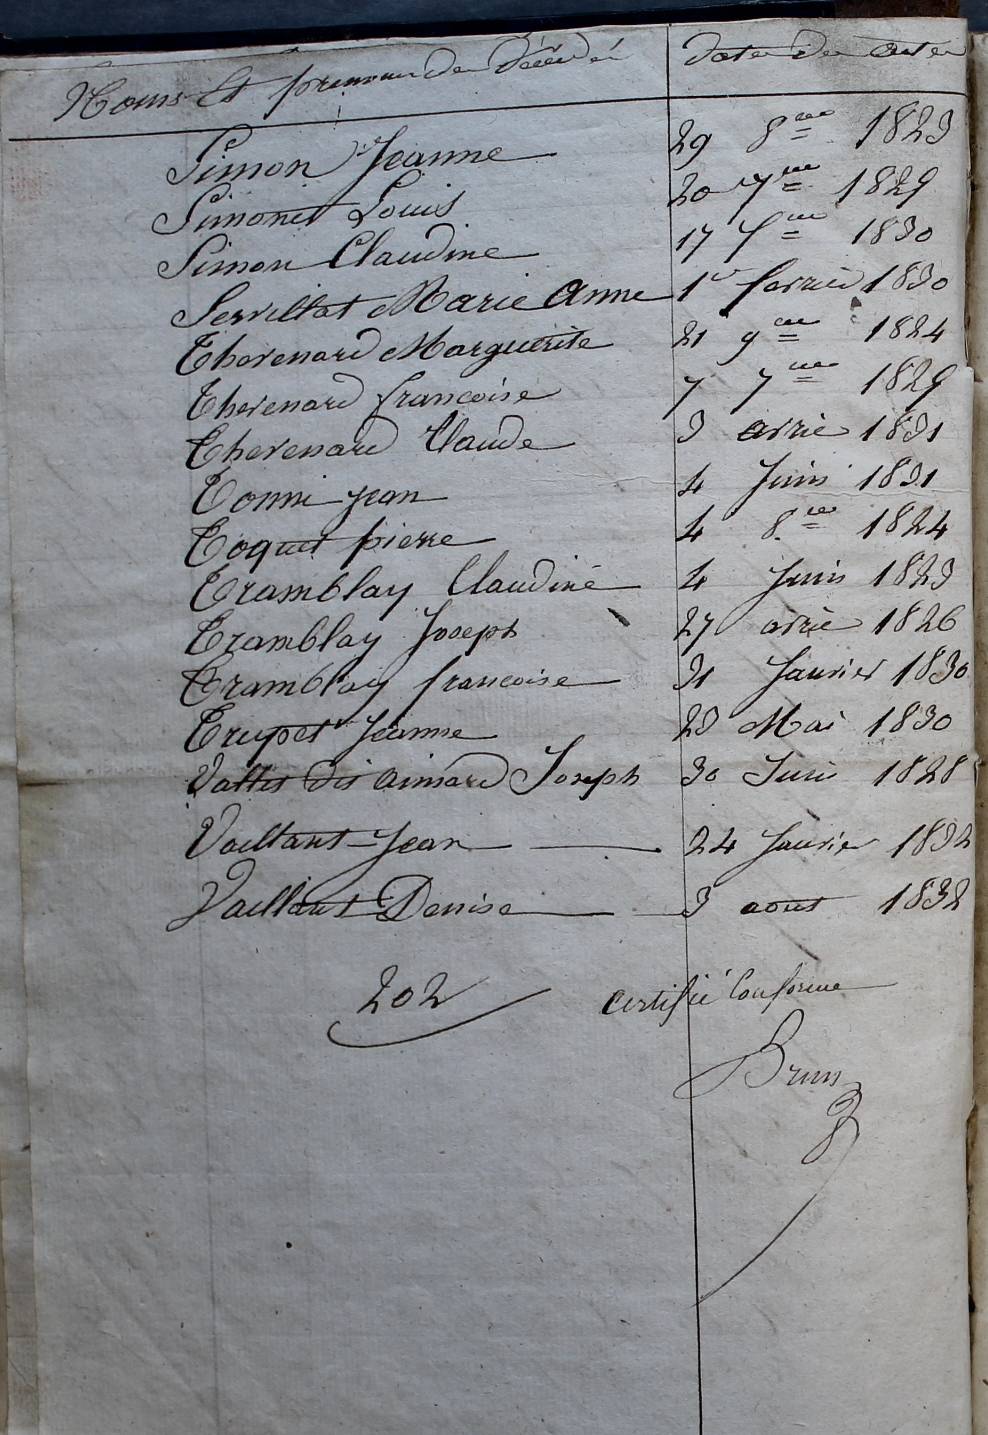 Noms Et prenoms des Décédés dates des actes
Simon Jeanne 29 8bre 1823
Simonet Louis 20 7bre 1829
Simon Claudine 17 1830
Servillat Marie Anne 1er fevrier 1830
Thevenard Marguerite 21 9bre 1824
Thevenard francoise 7 7bre 1829
Thevenard Claude 3 avril 1831
Tonni jean 4 Juin 1831
Toquet pierre 4 8bre 1824
Tramblay Claudine 4 Juin 1823
Tramblay Joseph 27 avril 1826
Tramblay francoise 31 Janvier 1830
Trupet Jeanne 23 Mai 1830
Vattis dit aimard Joseph 30 Juin 1828
Vaillant Jean 24 Janvier 1832
Vaillant Denise 3 aout 1832
202 certifié Conforme
Brun